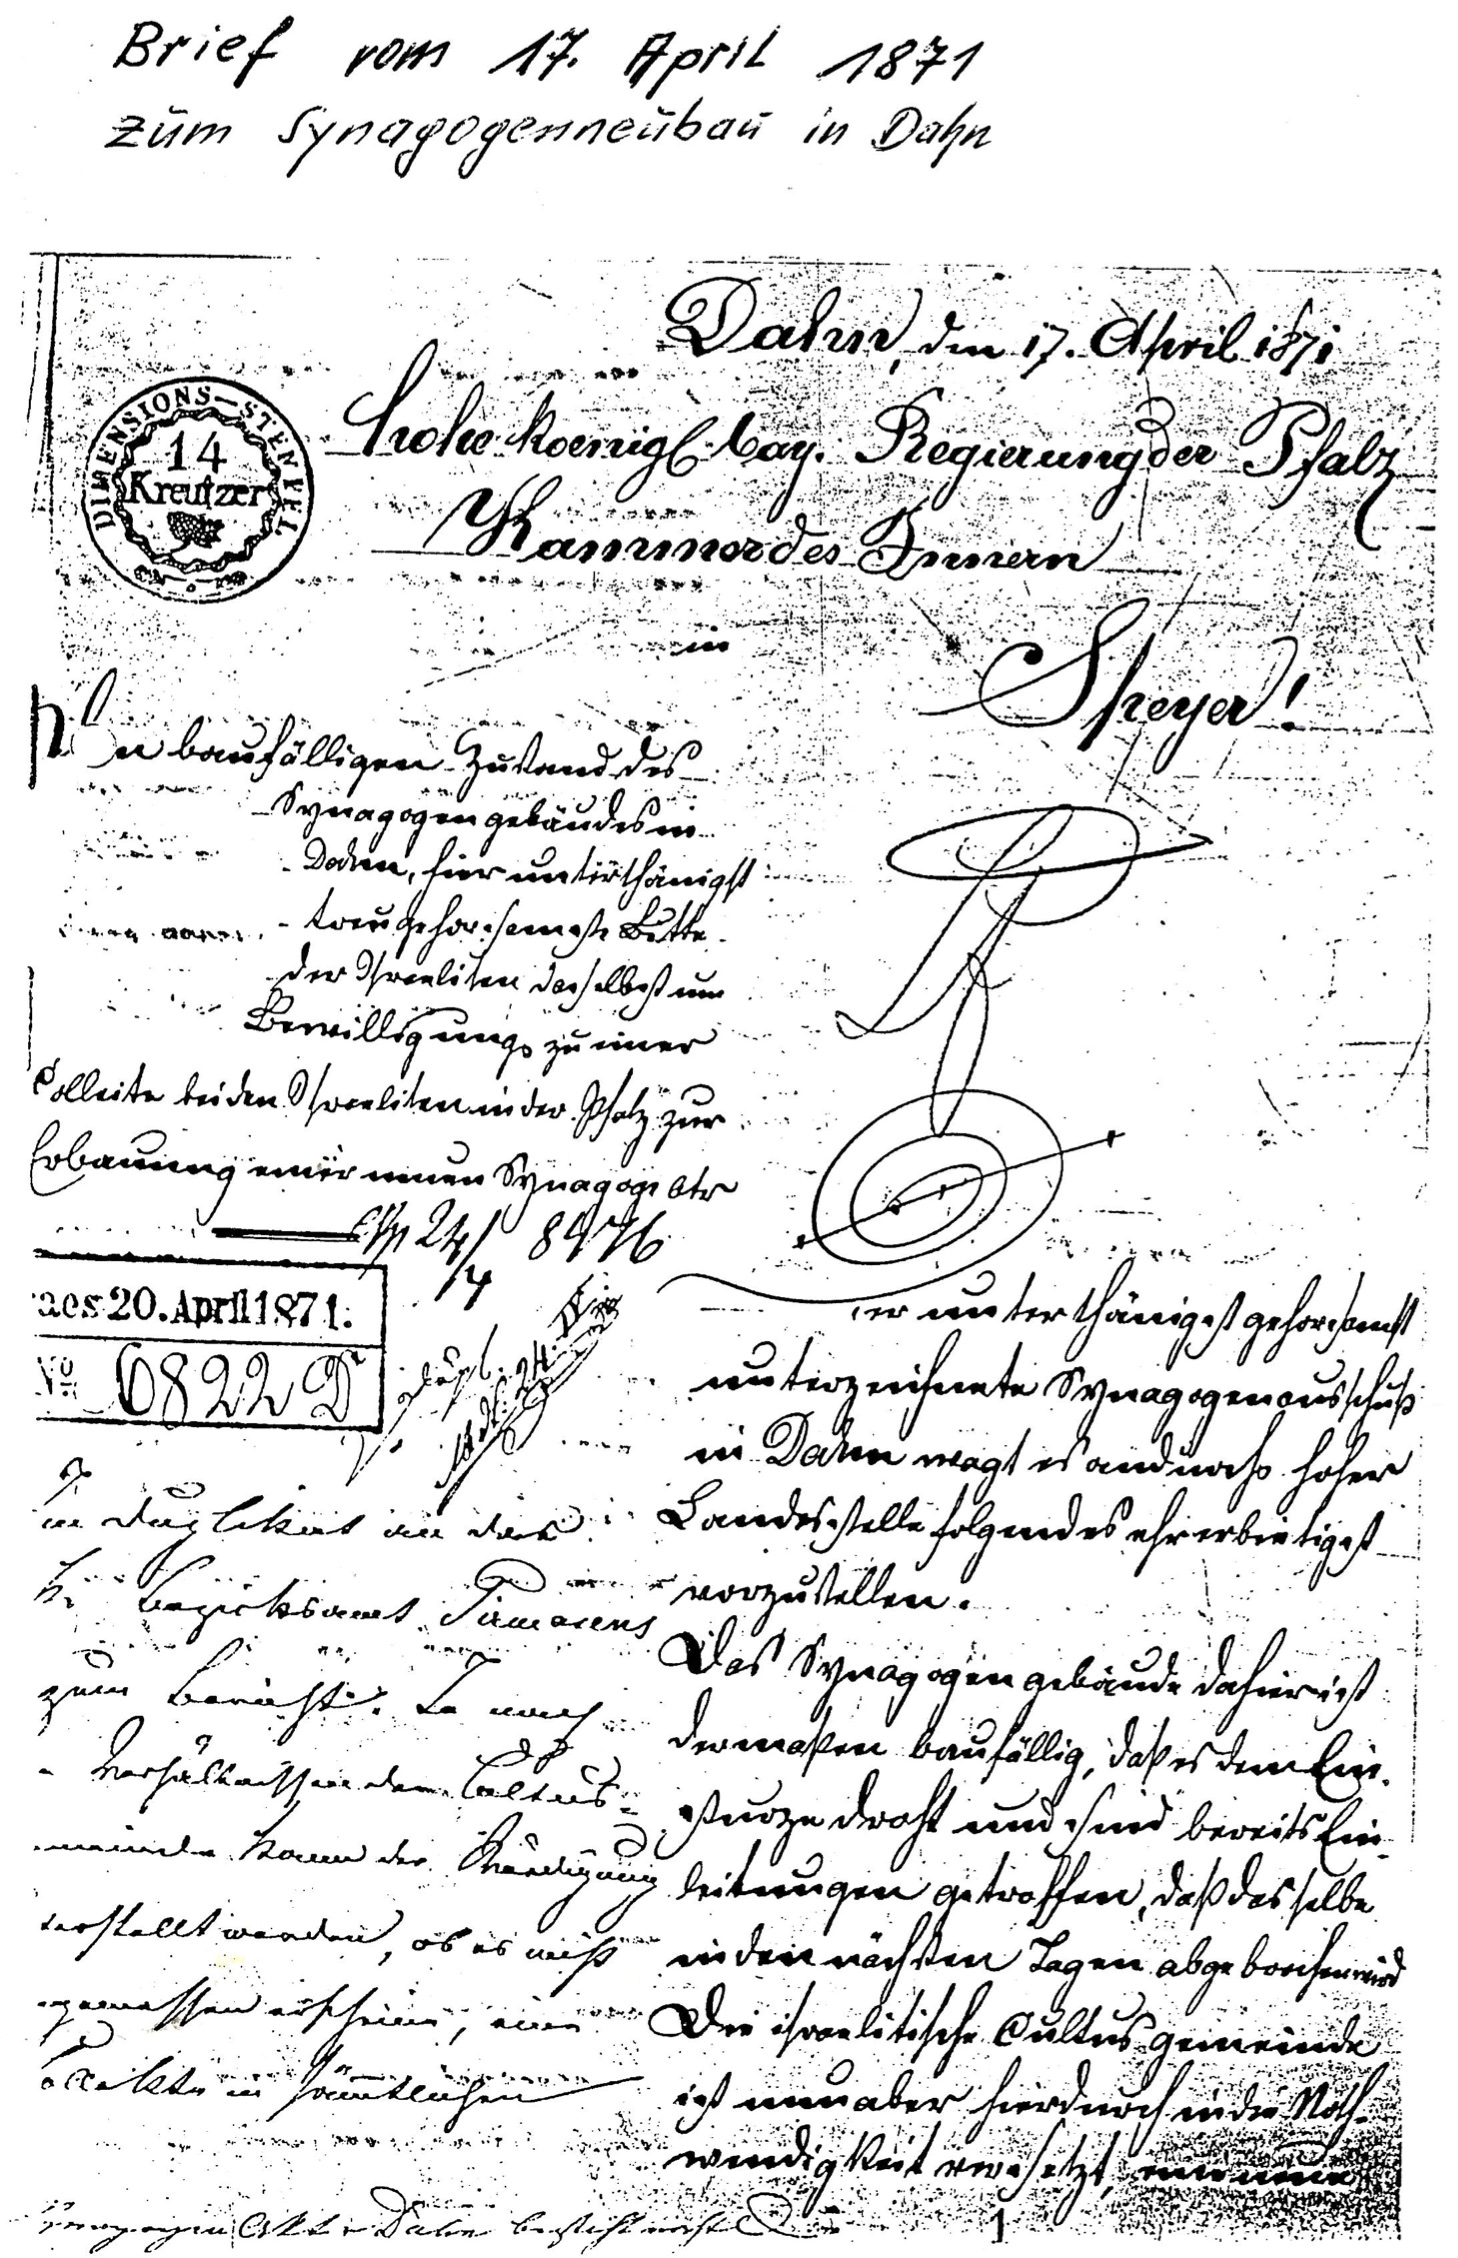 Brief vom 17. April 1871
zum Synagogenneubau in Dahn
Dahn, den 17. April 1871
DIMENSIONS-STEMPEL
14
Kreutzer
Hohe koenigl. bay. Regierung der Pfalz
Kammer des Innern
in
Speyer!
Den baufälligen Zustand des
Synagogengebäudes in
Dahn, hier unterthänigst
treugehorsamste Bitte
der Israeliten daselbst um
Bewilligung zu einer
Collecte bei den Israeliten in der Pfalz zur
Erbauung einer neuen Synagoge btr
24/4
20. April 1871.
No 6822 D
Der unterthänigst gehorsamst
unterzeichnete Synagogenausschuß
in Dahn wagt es andurch hoher
Landesstelle folgendes ehrerbietigst
vorzustellen.
Das Synagogengebäude dahier ist
dermaßen baufällig, daß es dem Ein-
sturze droht und sind bereits Ein-
leitungen getroffen, daß dasselbe
in den nächsten Tagen abgebrochen wird
Die israelitische Cultusgemeinde
ist nun aber hierdurch in die Noth-
wendigkeit versetzt, eine neue
in Duplikat an das
k. Bezirksamt Pirmasens
zum Bericht. Je nach
Verhältnissen der Cultus-
meinde kann der Würdigung
terstellt werden, ob es nicht
gemessen erscheine, eine
in sämmtlichen
1